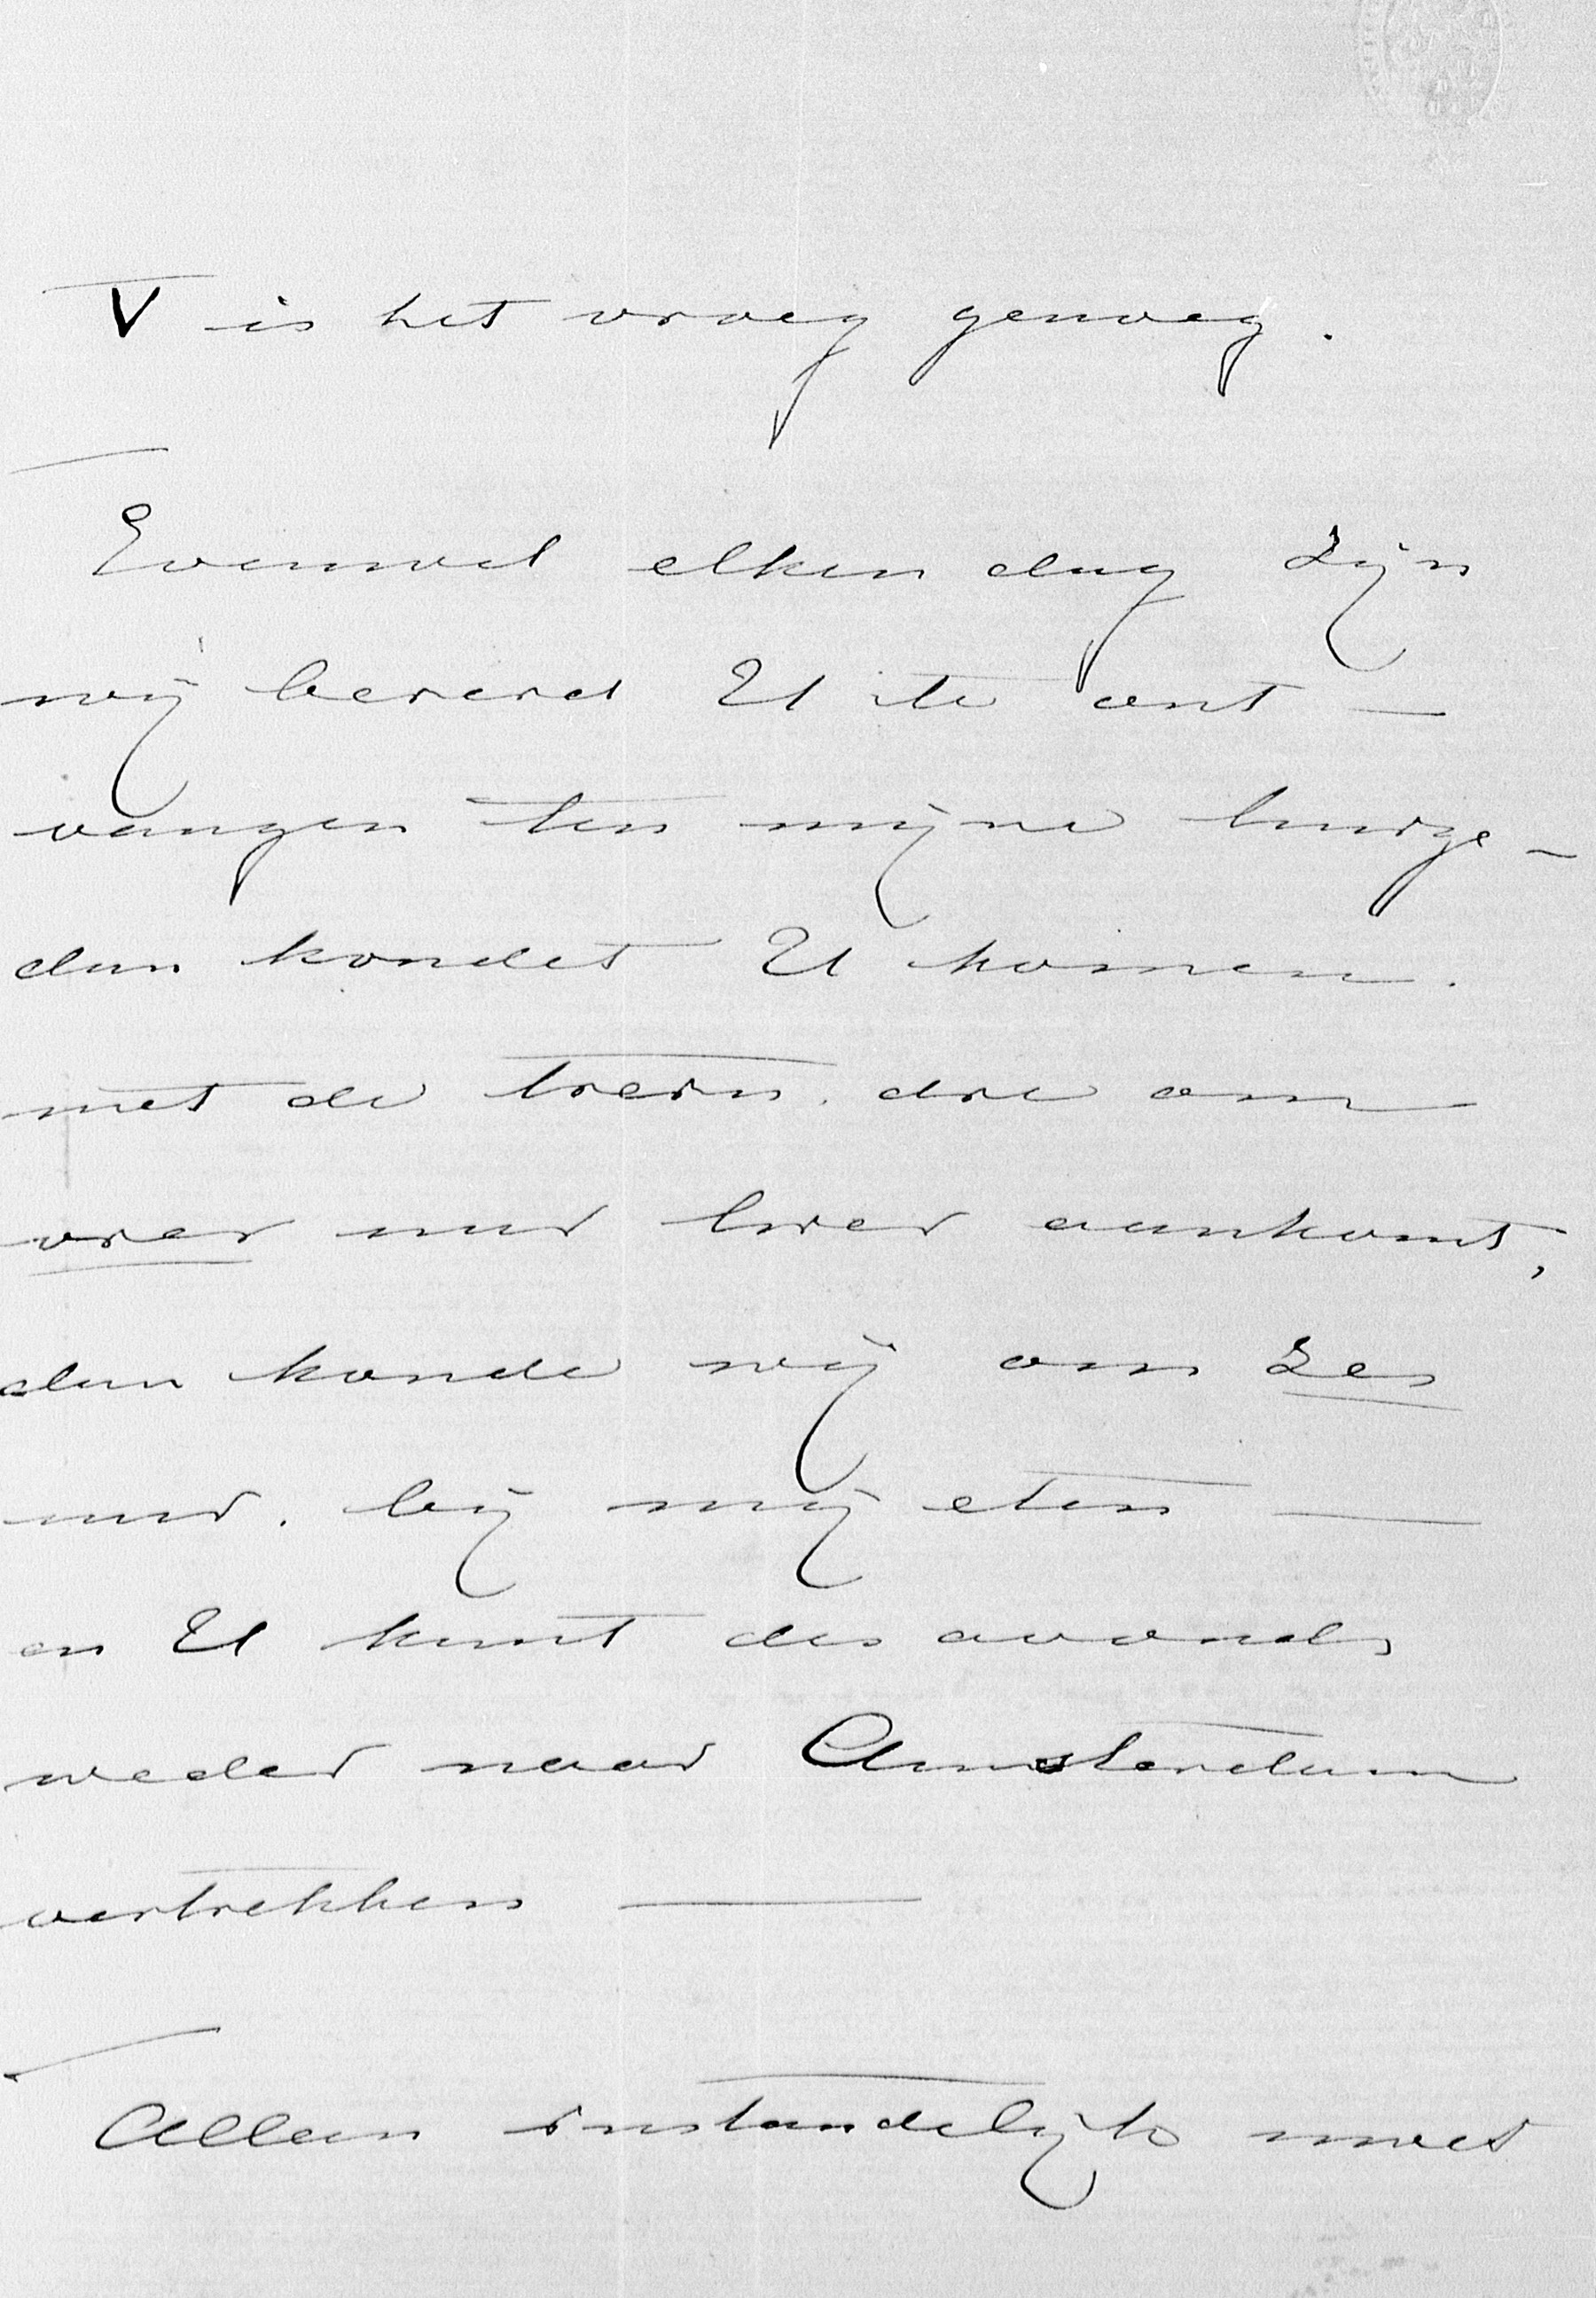 V is het vroeg genoeg.
Evenwel elken dag zijn
wij bereid U te ont-
vangen ten mijne huize -
dan kondet U komen.
met de trein. die om
vier uur hier aankomt,
dan konde wij om zes
uur. bij mij eten —
en U kunt des avonds
weder naar Amsterdam
vertrekken —
Alleen instandelijk moet